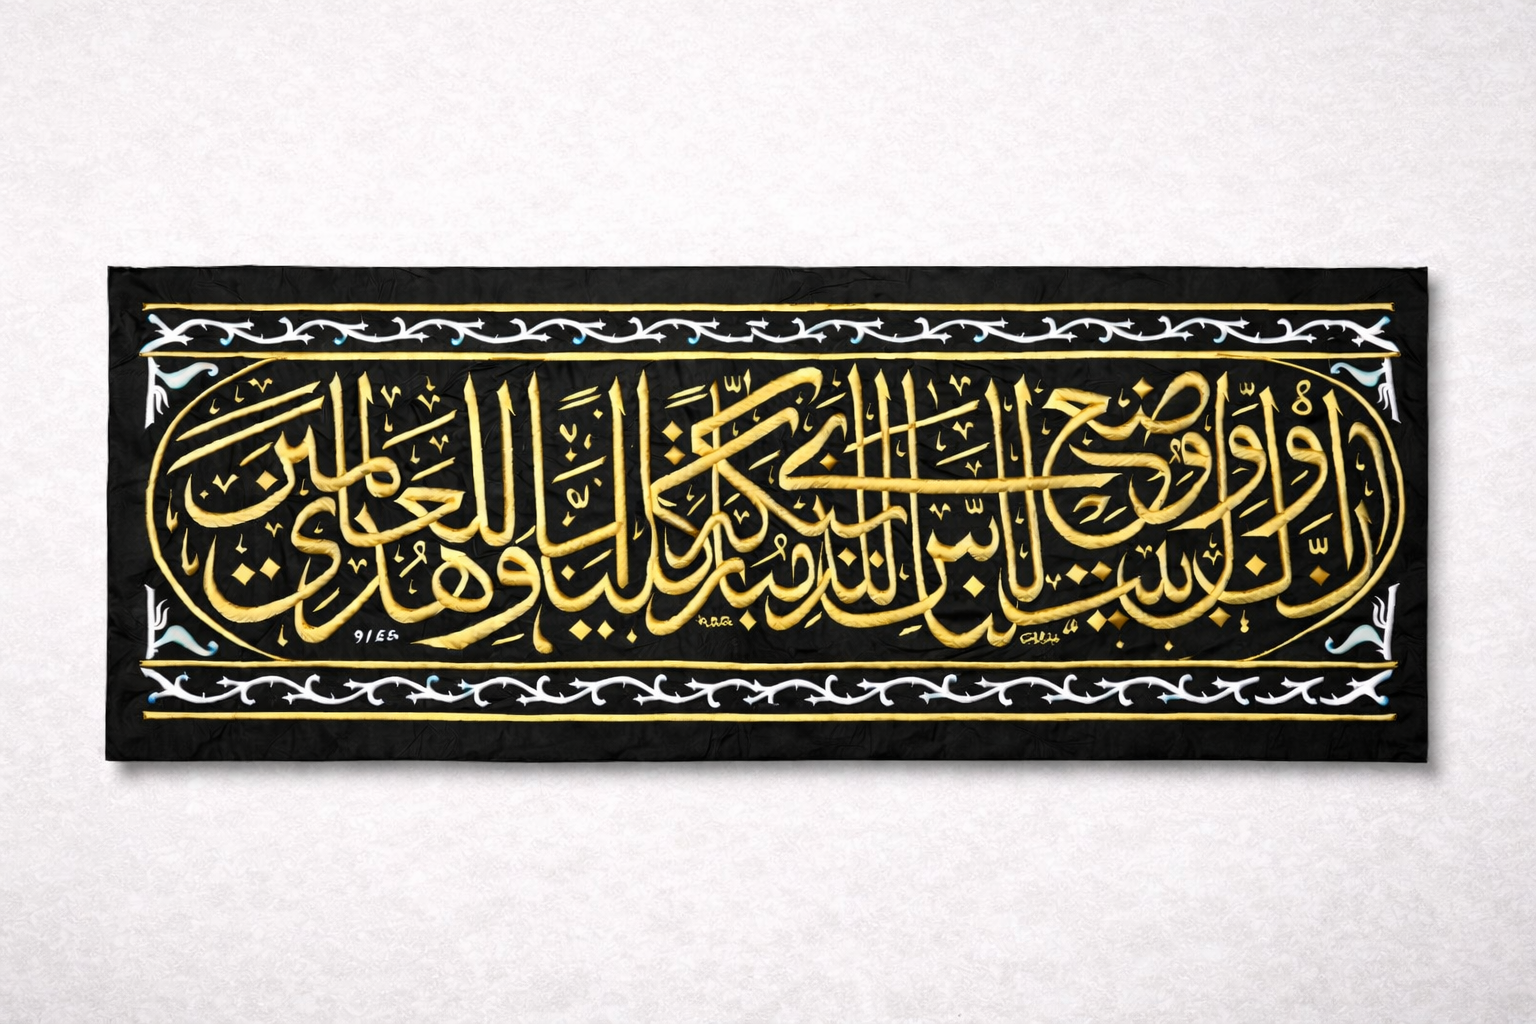 إِنَّ أَوَّلَ بَيْتٍ وُضِعَ لِلنَّاسِ لَلَّذِي بِبَكَّةَ مُبَارَكًا وَهُدًى لِلْعَالَمِينَ